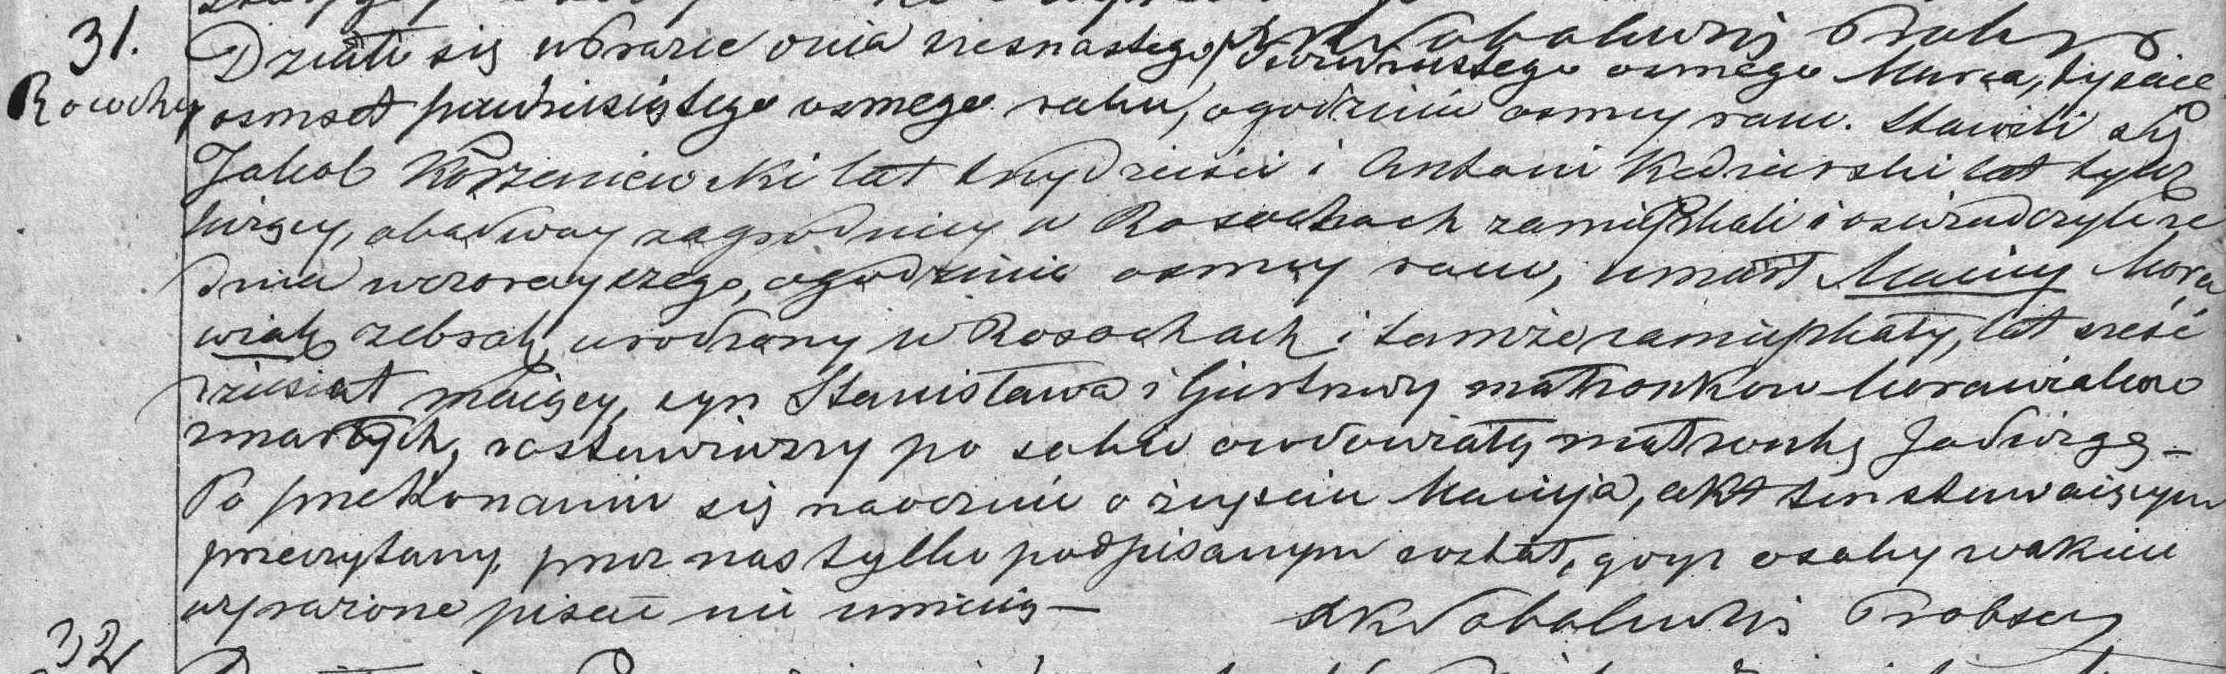 31.
Rosochy
Działo się w Brarze dnia szesnastego / dwudziestego osmego Marca, tysiąc
osmset pięćdziesiątego osmego roku, o godzinie osmey rano. Stawili się
Jakob Korzeniewski lat trzydzieści i Antoni Kedzierski lat tyleż
liczący, obadway zagrodnicy w Rosochach zamięszkali i oświadczyli że
dnia wczorayszego, o godzinie osmey rano, umarł Maciey Mora
wiak żebrak, urodzony w Rosochach i tamże zamięszkały, lat sześć
dziesiąt maiący, syn Stanisława i Giertrudy małżonkow Morawiakow
zmarłych, zostawiwszy po sobie owdowiałą małżonkę Jadwigę –
Po przekonaniu się naocznie o zeyściu Macieja, akt ten stawaiącym
przeczytany, przez nas tylko podpisanym został, gdyż osoby w akcie
wyrażone pisać nie umieią –
Proboszcz
32